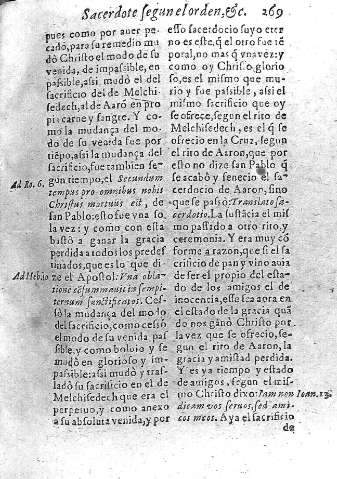 Sacerdote segun el orden, &c. 269
pues como por auer pe-
cado, para su remedio mu
dò Christo el modo de su
venida, de impassible, en
passible, assi mudó el del
sacrificio del de Melchi-
sedech, al de Aarõ en pro
pia carne y sangre. Y co-
mo la mudança del mo-
do de su venida fue por
tiẽpo, assi la mudança del
sacrificio, fue tambien se-
gũn tiempo, el Secundum
tempus pro omnibus nobis
Christus mortuus est, de
san Pablo: esto fue vna so
la vez: y como con esta
bastó a ganar la gracia
perdida a todos los predes
tinados, que es lo que di-
ze el Apostol: Vna obla-
tione cõsummauit in sempi-
ternum sanctificatos. Ces-
sò la mudança del modo
del sacrificio, como cessó
el modo de su venida pas
sible, y como boluio y se
mudò en glorioso y im-
passible: assi mudò y tras-
ladò su sacrificio en el de
Melchisedech que era el
perpetuo, y como anexo
a su absoluta venida, y por
Ad Ro. 6.
Ad Hebr.
esso sacerdocio suyo eter
no es este, q̃ el otro fue tẽ
poral, no mas q̃ vna vez: y
como oy Christo, glorio
so, es el mismo que mu-
rio y fue passible, assi el
mismo sacrificio que oy
se ofrece, segun el rito de
Melchisedech, es el q̃ se
ofrecio en la Cruz, segun
el rito de Aaron, que por
esto no dize san Pablo q̃
se acabó y fenecio el sa-
cerdocio de Aaron, sino
que se passò: Translato sa-
cerdotio. La sustãcia el mis
mo passido a otro rito, y
ceremonia. Y era muy cõ
forme a razon, que si el sa
crificio de pan y vino auia
de ser el propio del esta-
do de los amigos el de
inocencia, esse sea aora en
el estado de la gracia quã
do nos ganò Christo por
la vez que se ofrecio, se-
gun el rito de Aaron, la
gracia y amistad perdida.
Y es ya tiempo y estado
de amigos, segun el mis-
mo Christo dixo: Iam non
dicam vos seruos, sed ami-
cos meos. A ya el sacrificio
de
Ioan. 15.